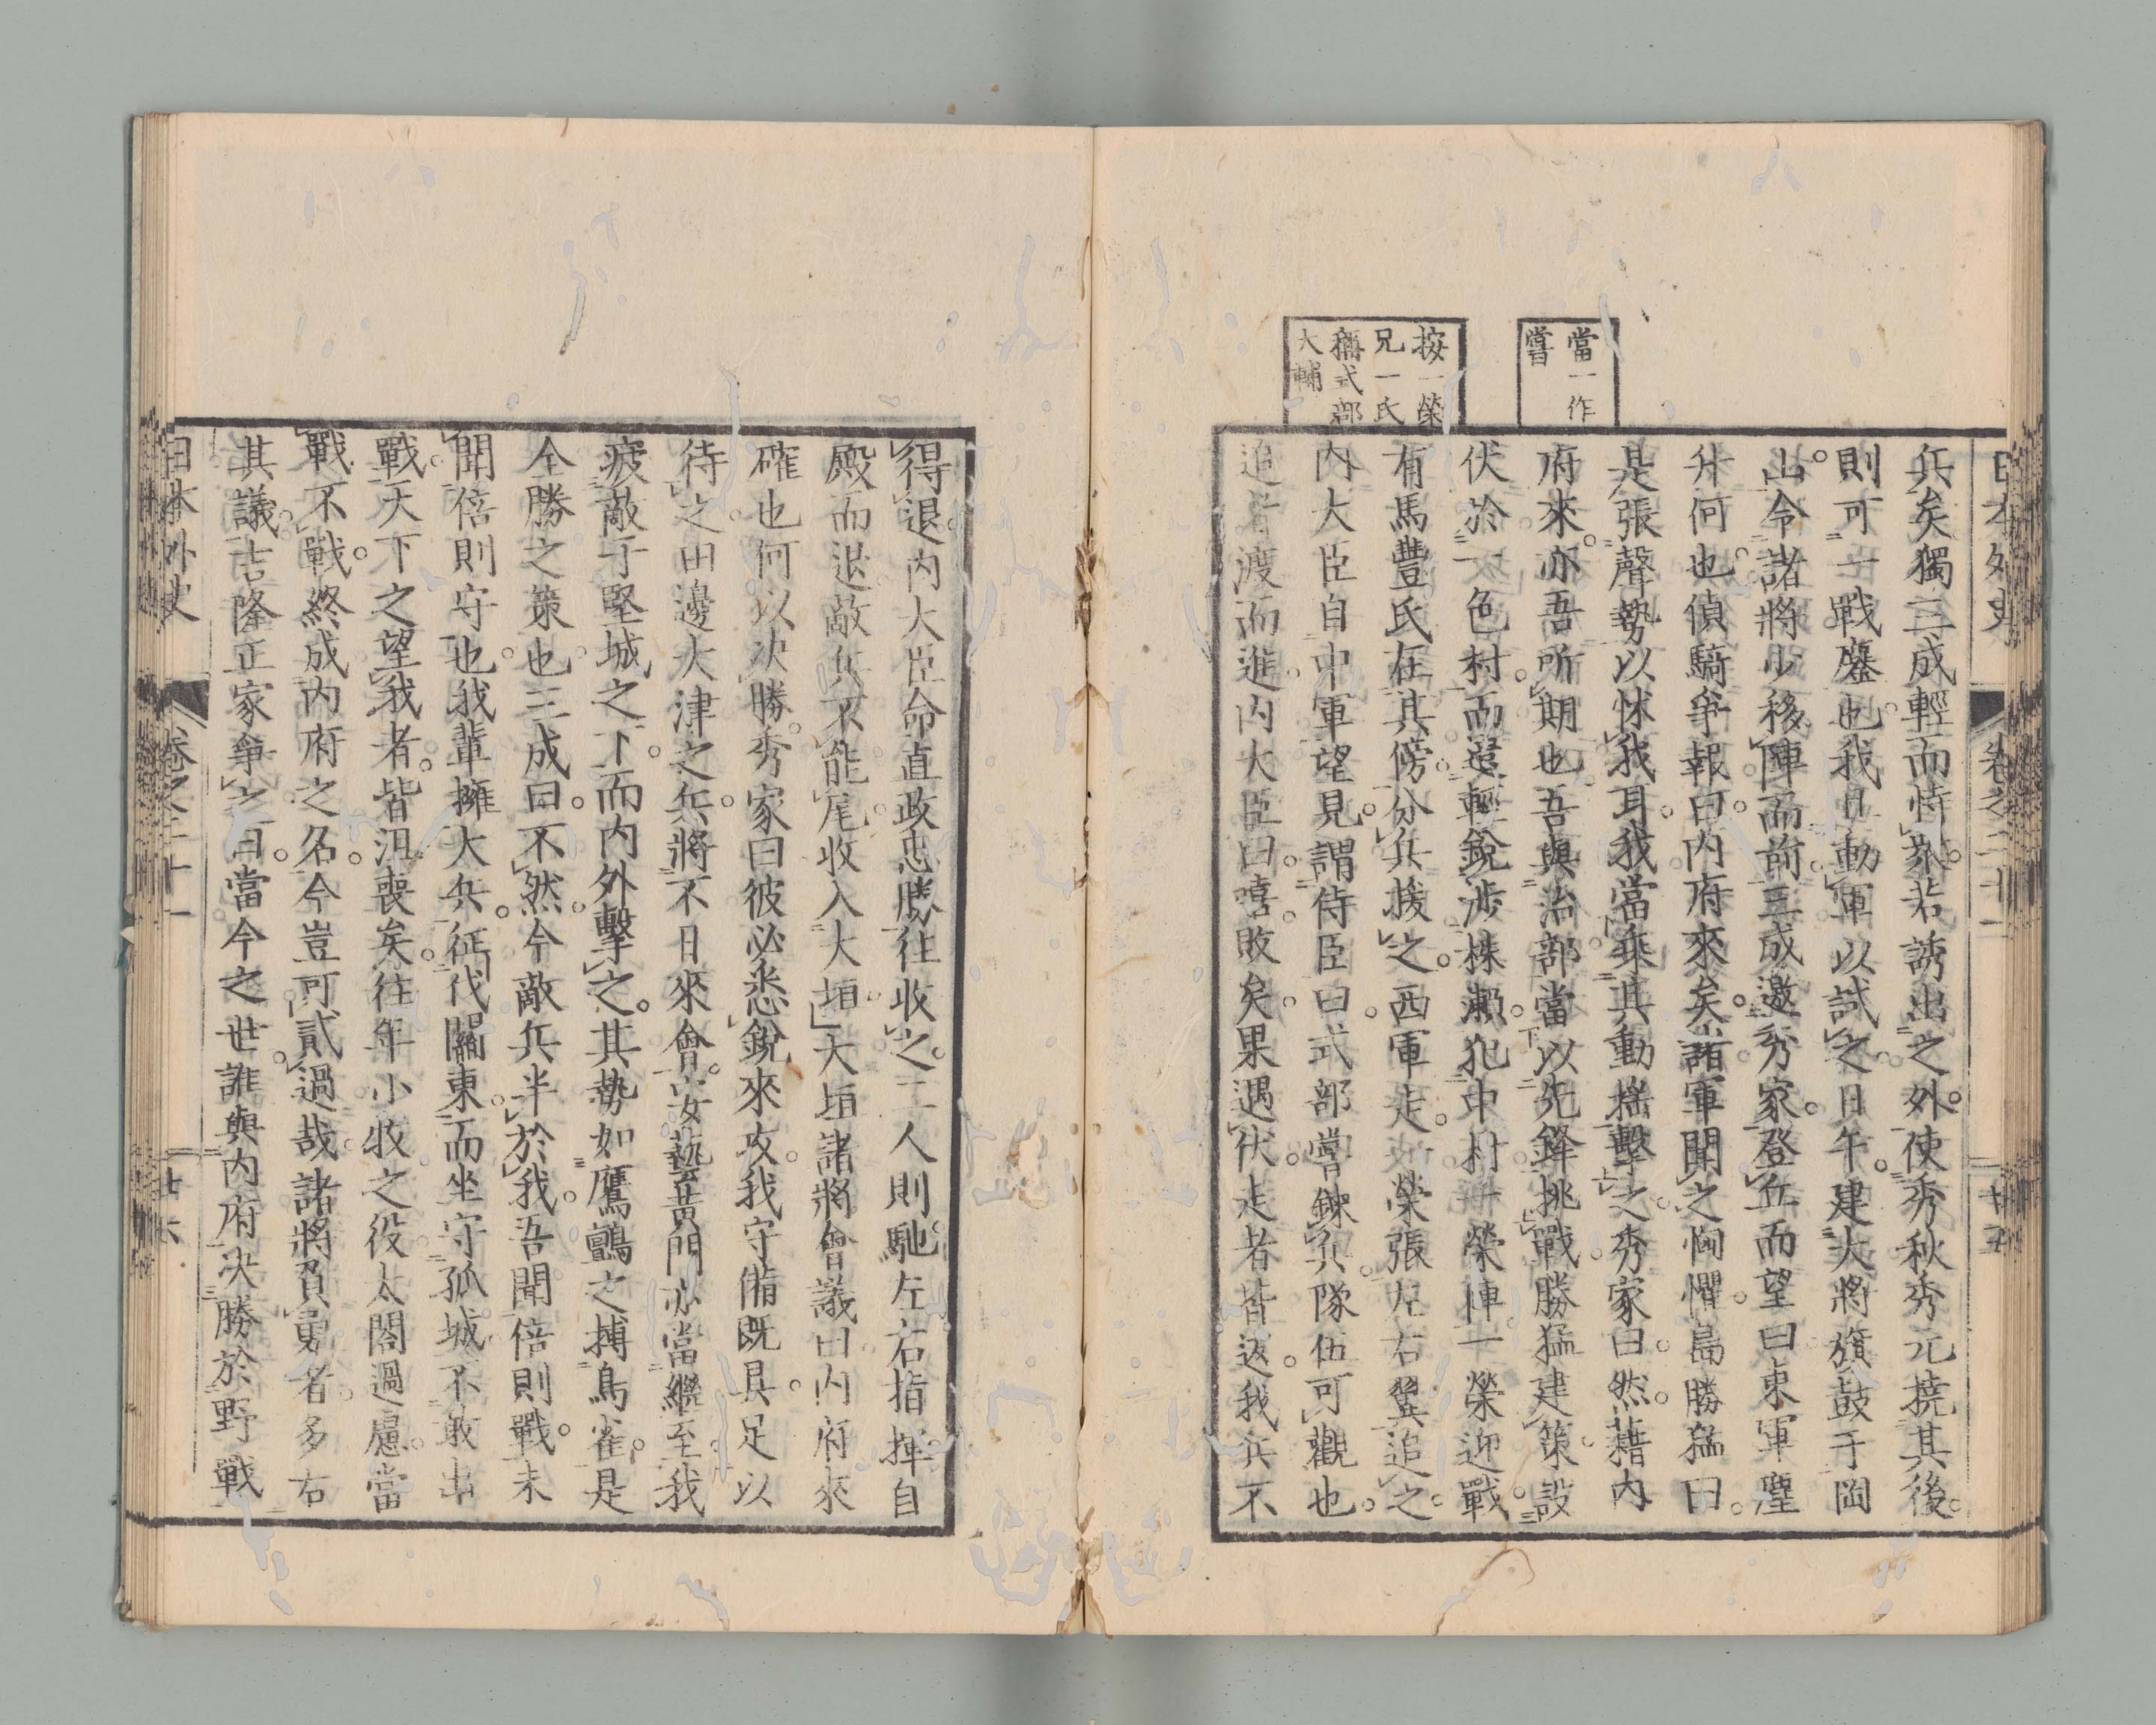 日本外史 卷之二十一 廿五
當一作
嘗
按一榮
兄一氏
稱式部
大輔
兵矣獨三成輕而恃衆若誘出之外使秀秋秀元撓其後
則可一戰鏖也我且動軍以試之日午建大將旗鼓于岡
山令諸將少移陣而前三成邀秀家登丘而望曰東軍塵
升何也偵騎爭報曰内府來矣諸軍聞之恟懼島勝猛曰
是張聲勢以怵我耳我當乘其動搖擊之秀家曰然藉内
府來亦吾所期也吾與治部當以先鋒挑戰勝猛建策設
伏於一色村而選輕銳涉株瀬犯中村一榮陣一榮迎戰
有馬豐氏在其傍分兵援之西軍走一榮張左右翼追之
内大臣自中軍望見謂侍臣曰式部嘗鍊兵隊伍可觀也
追者渡而進内大臣曰嘻敗矣果遇伏走者皆返我兵不
得退内大臣命直政忠勝往收之二人則馳左右指揮自
殿而退敵兵不能尾收入大垣大垣諸將會議曰内府來
確也何以決勝秀家曰彼必悉銳來攻我守備既具足以
待之田邊大津之兵將不日來會安藝黄門亦當繼至我
疲敵于堅城之下而内外擊之其勢如鷹鸇之搏鳥雀是
全勝之策也三成曰不然今敵兵半於我吾聞倍則戰未
聞倍則守也我輩擁大兵征伐關東而坐守孤城不敢出
戰天下之望我者皆沮喪矣往年小牧之役太閤過慮當
戰不戰終成内府之名今豈可貳過哉諸將負勇者多右
其議吉隆正家爭之曰當今之世誰與内府決勝於野戰
日本外史 卷之二十一 廿六